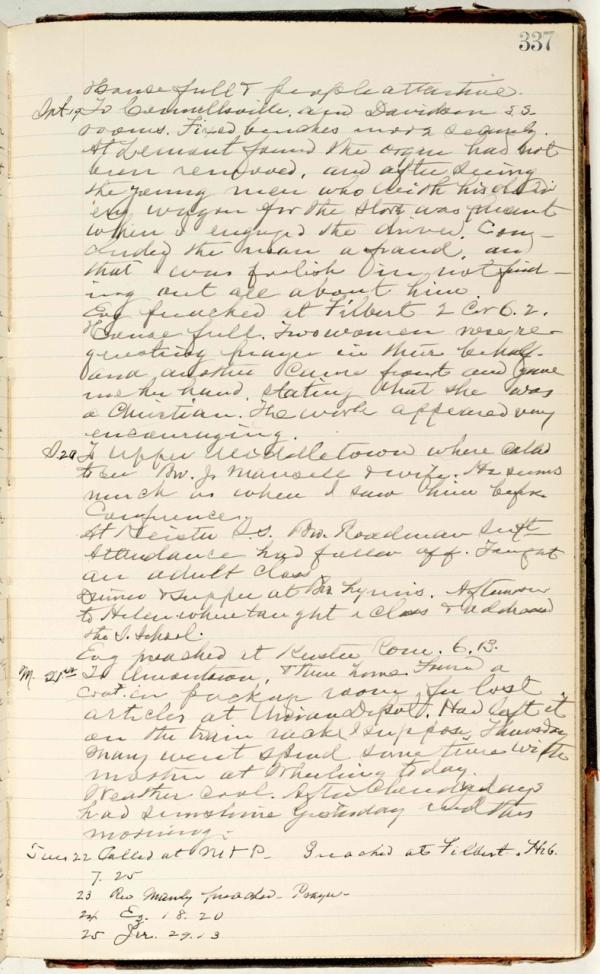 337
House full & people attentive.
Sat. 19 To Connellsville, and Davidson S.S.
rooms. Fixed benches more securely.
At Lemont found the organ had not
been removed, and after seeing
the young men who with his
ery wagon for the store was present
when I engaged the driver. Con-
cluded the man a fraud, and
that I was foolish in not find-
ing out all about him.
Evg preached at Filbert 2 Cor 6. 2.
House full. Two women rose re-
questing prayer in their behalf
and another came front and gave
me her hand, stating that she was
a Christian. The work appeared very
encouraging.
S. 20 To Upper Middletown where called
to see Bro. J. & wife. He seems
much as when I saw him before
Conference.
At Keister S.S. Bro. Roadman Supt
Attendance had fallen off. Taught
an adult class
Dinner & supper at Bro. Afternoon
to Helen where taught a class & addressed
the S. School.
Evg preached at Keister Rom. 6. 13.
M. 21st To & then home. Found a
Coat in package room for lost
articles at Union Depot. Had left it
on the train rack I suppose Thursday
Mary went spend some time with
mother at Wheeling today.
Weather cool. After cloudy days
had sunshine yesterday and this
morning.
Tues 22 Called at M & P. Preached at Filbert. Heb.
7. 25
23 Rev preached - Prayer -
24 Ez. 18. 20
25 Jer. 29. 13